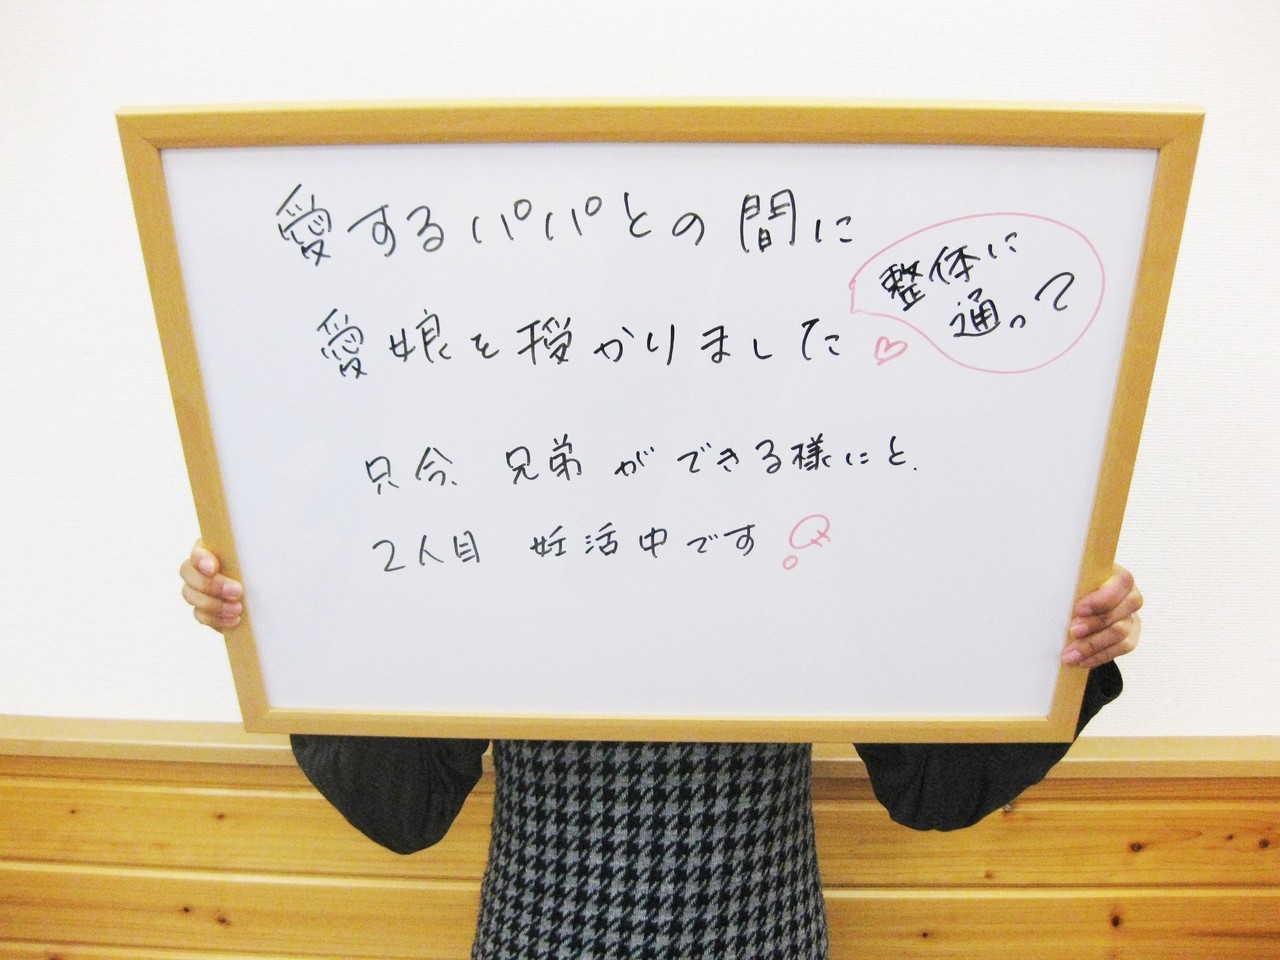 愛するパパとの間に
愛娘を授かりました♡
整体に
通って
只今、兄弟ができる様にと、
2人目 妊活中です